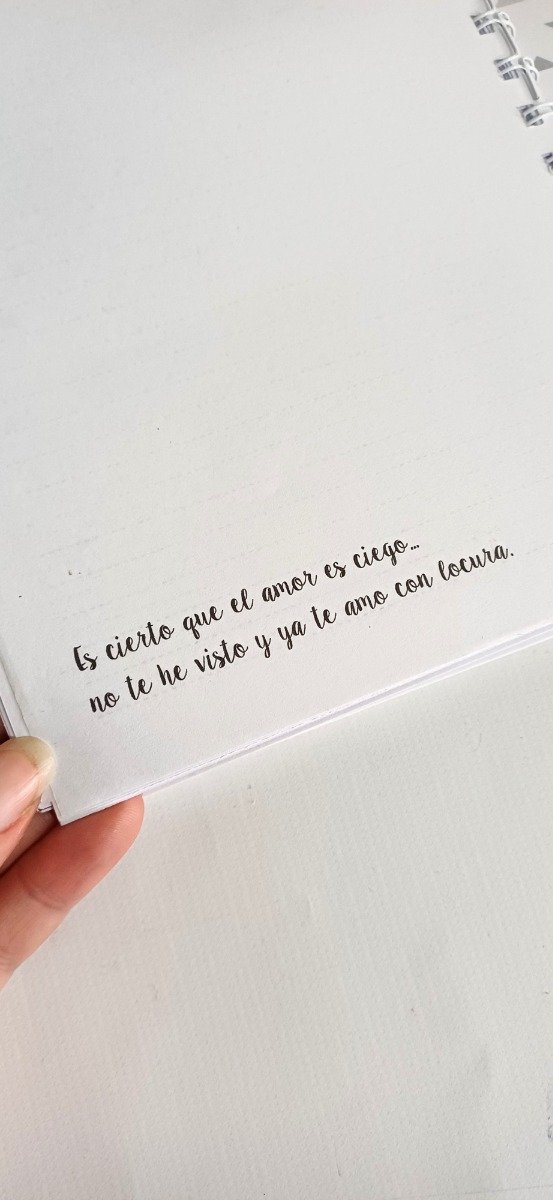 Es cierto que el amor es ciego...
no te he visto y ya te amo con locura.